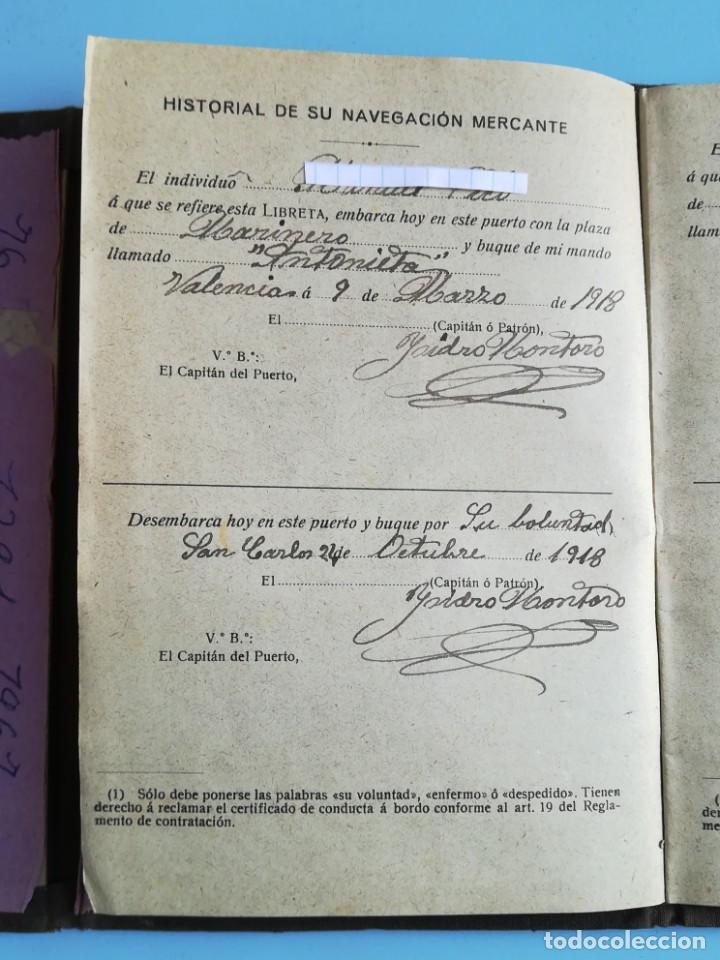 HISTORIAL DE SU NAVEGACIÓN MERCANTE
El individuo
á que se refiere esta LIBRETA, embarca hoy en este puerto con la plaza
de Marinero y buque de mi mando
llamado "Antonieta"
Valencia á 9 de Marzo de 1918
El (Capitán ó Patrón),
V.° B.°: Ysidro Montoro
El Capitán del Puerto,
Desembarca hoy en este puerto y buque por Su boluntad,
San Carlos 24 de Octubre de 1918
El (Capitán ó Patrón),
Ysidro Montoro
V.° B.°:
El Capitán del Puerto,
(1) Sólo debe ponerse las palabras «su voluntad», «enfermo» ó «despedido». Tienen
derecho á reclamar el certificado de conducta á bordo conforme al art. 19 del Regla-
mento de contratación.
E
á qu
de
llam
(
der
me
todocoleccion